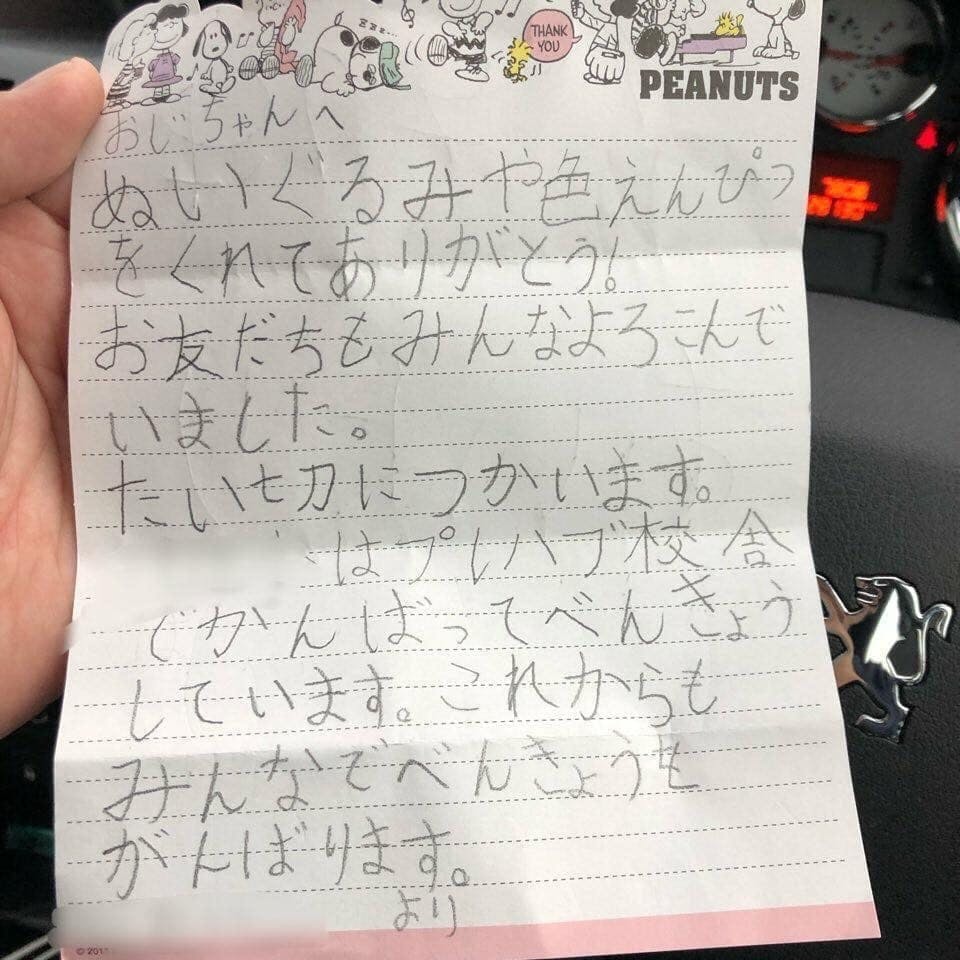 THANK
YOU
PEANUTS
おじちゃんへ
ぬいぐるみや色えんぴつ
をくれてありがとう!
お友だちもみんなよろこんで
いました。
たい切につかいます。
はプレハブ校舎
でがんばってべんきょう
しています。これからも
みんなでべんきょうも
がんばります。
より
© 201